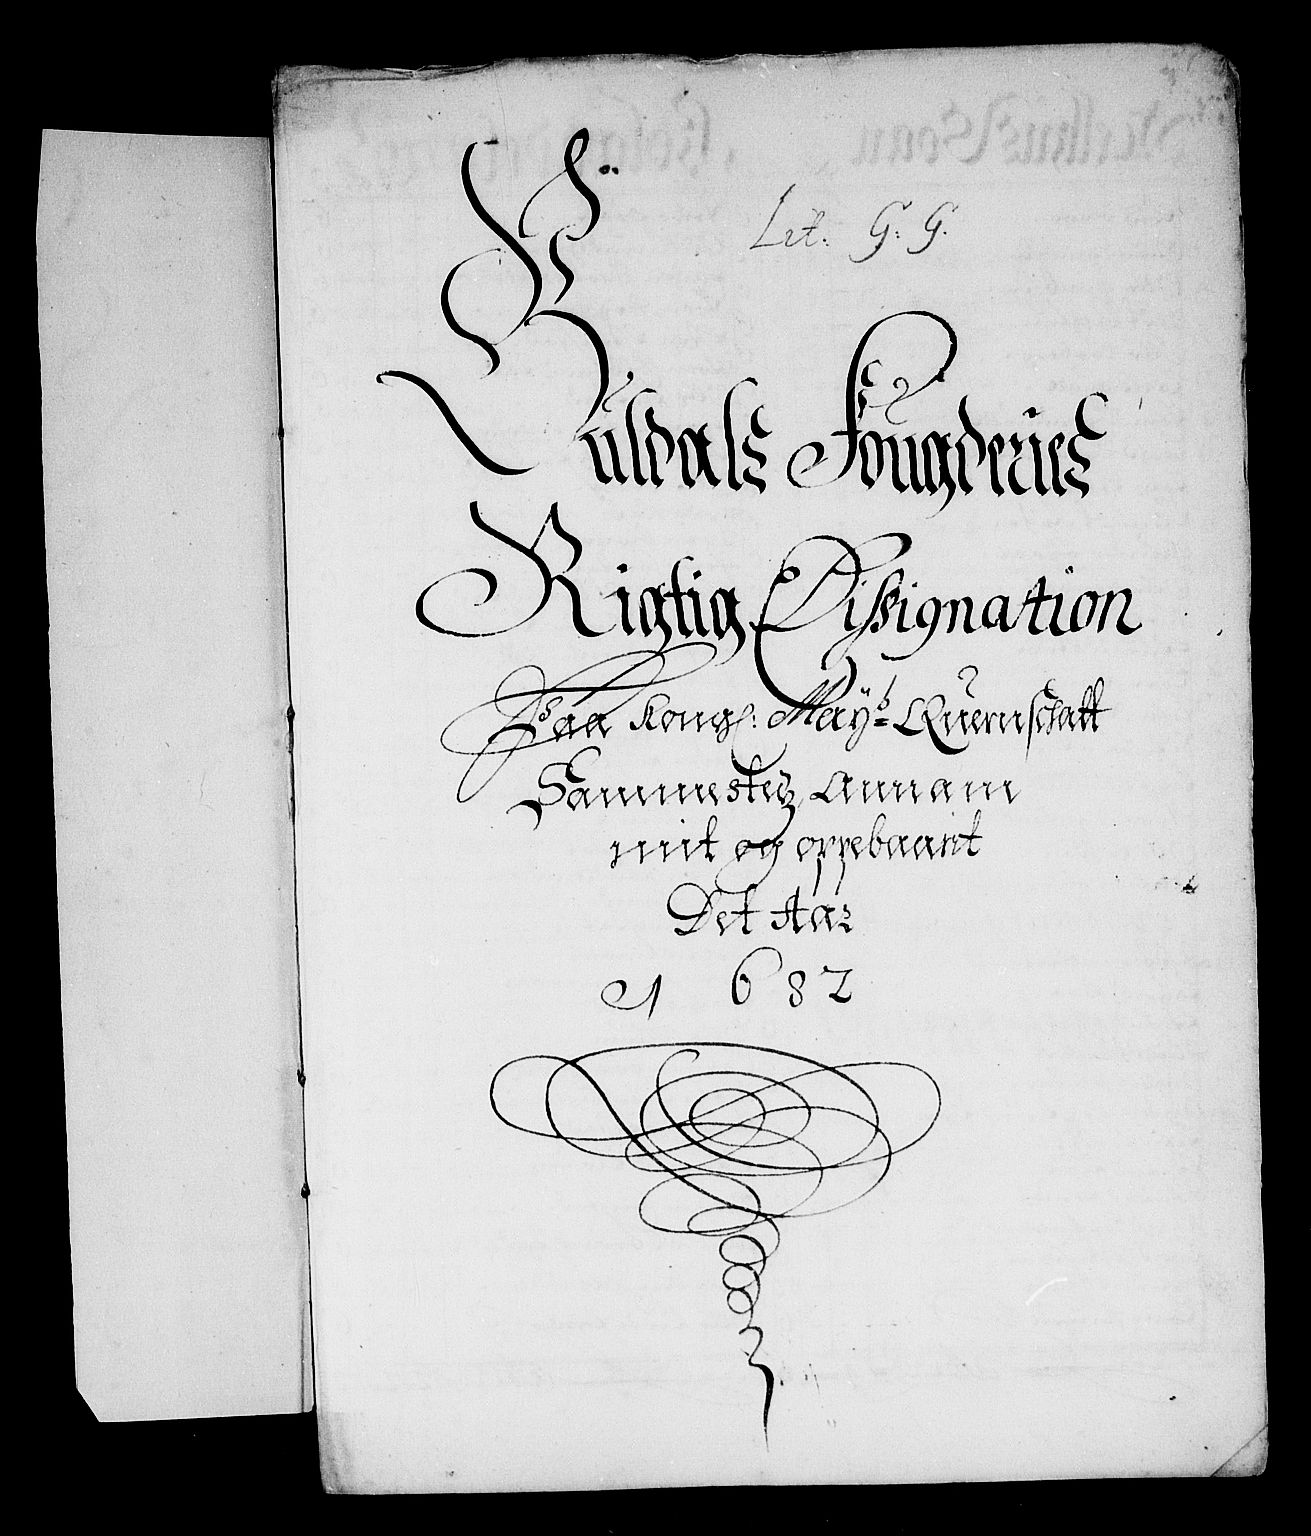 Lit. G: G:
Guldals Fougderies
Rigtig Dissignation
Paa Kong: Mayts Quernschatt
Sammesteds Annam
mit og oppebaarit
Det Aar
1682